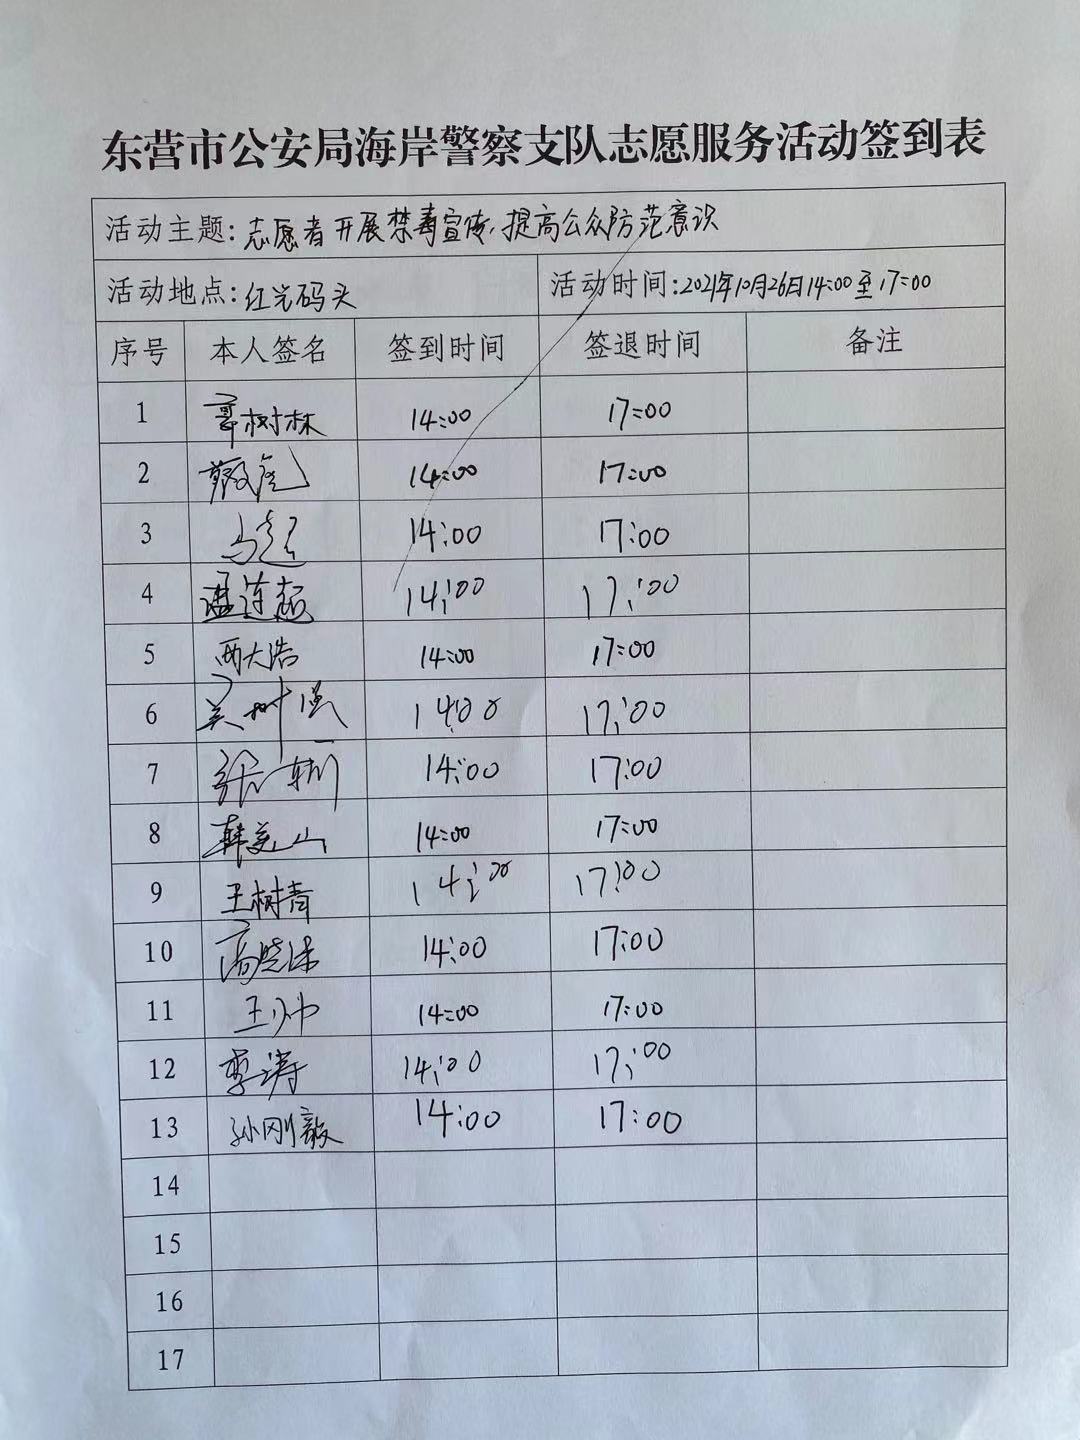 东营市公安局海岸警察支队志愿服务活动签到表
活动主题:志愿者开展禁毒宣传,提高公众防范意识
活动地点:红光码头 活动时间:2021年10月26日14:00至17:00
序号 本人签名 签到时间 签退时间 备注
1 树林 14:00 17:00
2 14:00 17:00
3 马超 14:00 17:00
4 孟连超 14:00 17:00
5 大浩 14:00 17:00
6 吴树 14:00 17:00
7 张 14:00 17:00
8 韩美山 14:00 17:00
9 王树青 14:00 17:00
10 高晓 14:00 17:00
11 王帅 14:00 17:00
12 李涛 14:00 17:00
13 孙刚毅 14:00 17:00
14
15
16
17